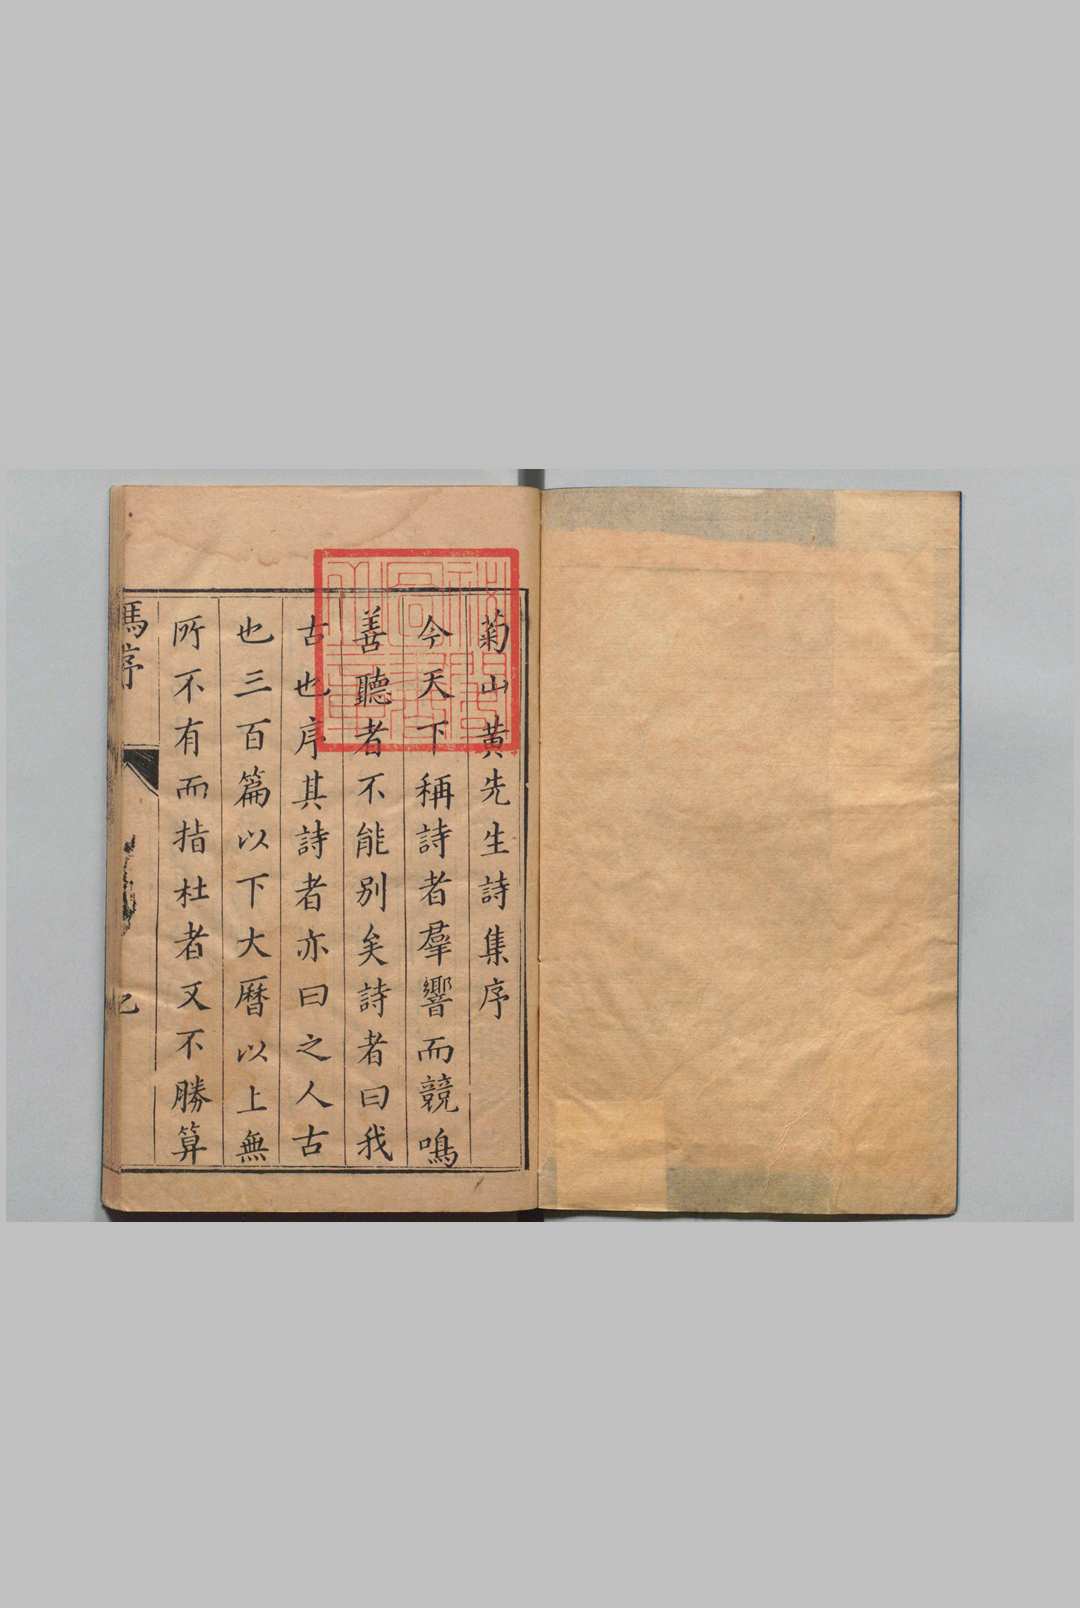 菊山黄先生詩集序
今天下稱詩者羣響而競鳴
善聽者不能別矣詩者曰我
古也序其詩者亦曰之人古
也三百篇以下大曆以上無
所不有而指杜者又不勝算
馮序